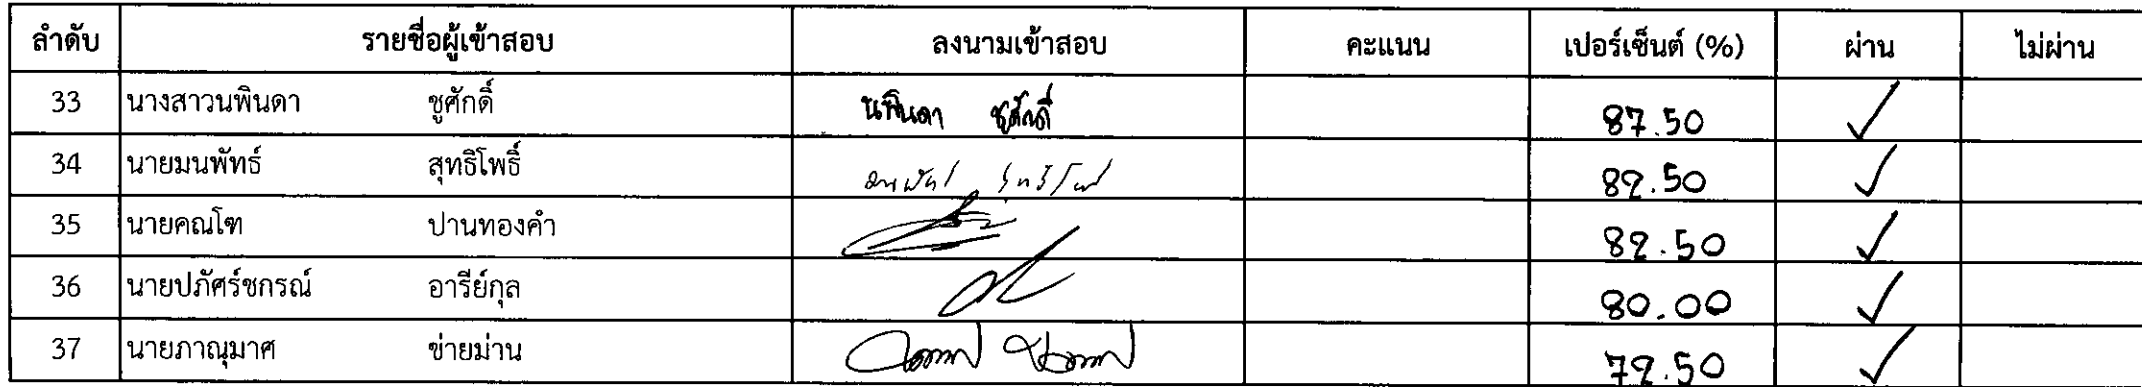 ลำดับ รายชื่อผู้เข้าสอบ ลงนามเข้าสอบ คะแนน เปอร์เซ็นต์ (%) ผ่าน ไม่ผ่าน
33 นางสาวนพินดา ชูศักดิ์ นพินดา ชูศักดิ์ 87.50 ✓
34 นายมนพัทธ์ สุทธิโพธิ์ มนพัทธ์ สุทธิโพธิ์ 82.50 ✓
35 นายคณโฑ ปานทองคำ 82.50 ✓
36 นายปภัศร์ชกรณ์ อารีย์กุล 80.00 ✓
37 นายภาณุมาศ ข่ายม่าน 72.50 ✓